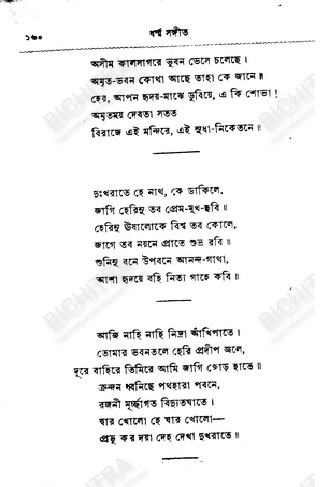 ১৬০
ধর্ম্ম সঙ্গীত
অসীম কালসাগরে ভুবন ভেসে চলেছে।
অমৃত-ভবন কোথা আছে তাহা কে জানে॥
হের, আপন হৃদয়-মাঝে ডুবিয়ে, এ কি শোভা!
অমৃতময় দেবতা সতত
বিরাজে এই মন্দিরে, এই সুধা-নিকেতনে॥
দুঃখরাতে হে নাথ, কে ডাকিলে,
জাগি হেরিনু তব প্রেম-মুখ-ছবি॥
হেরিনু ঊষালোকে বিশ্ব তব কোলে,
জাগে তব নয়নে প্রাতে শুভ্র রবি॥
শুনিনু বনে উপবনে আনন্দ-গাথা,
আশা হৃদয়ে বহি নিত্য গাহে কবি॥
আজি নাহি নাহি নিদ্রা আঁখিপাতে।
তোমার ভবনতলে হেরি প্রদীপ জলে,
দূরে বাহিরে তিমিরে আমি জাগি জোড় হাতে॥
ক্রন্দন ধ্বনিছে পথহারা পবনে,
রজনী মূর্চ্ছাগত বিদ্যুতঘাতে।
দ্বার খোলো হে দ্বার খোলো—
প্রভু কর দয়া দেহ দেখা দুখরাতে॥
BICHITRA